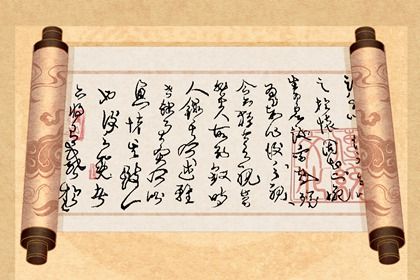 之於懷固知一死
生為虛誕齊彭殤
為妄作後之視
今亦由今之視昔
悲夫故列敘時
人錄其所述雖
世殊事異所以
興懷其致一
也後之覽者
亦將有感於斯